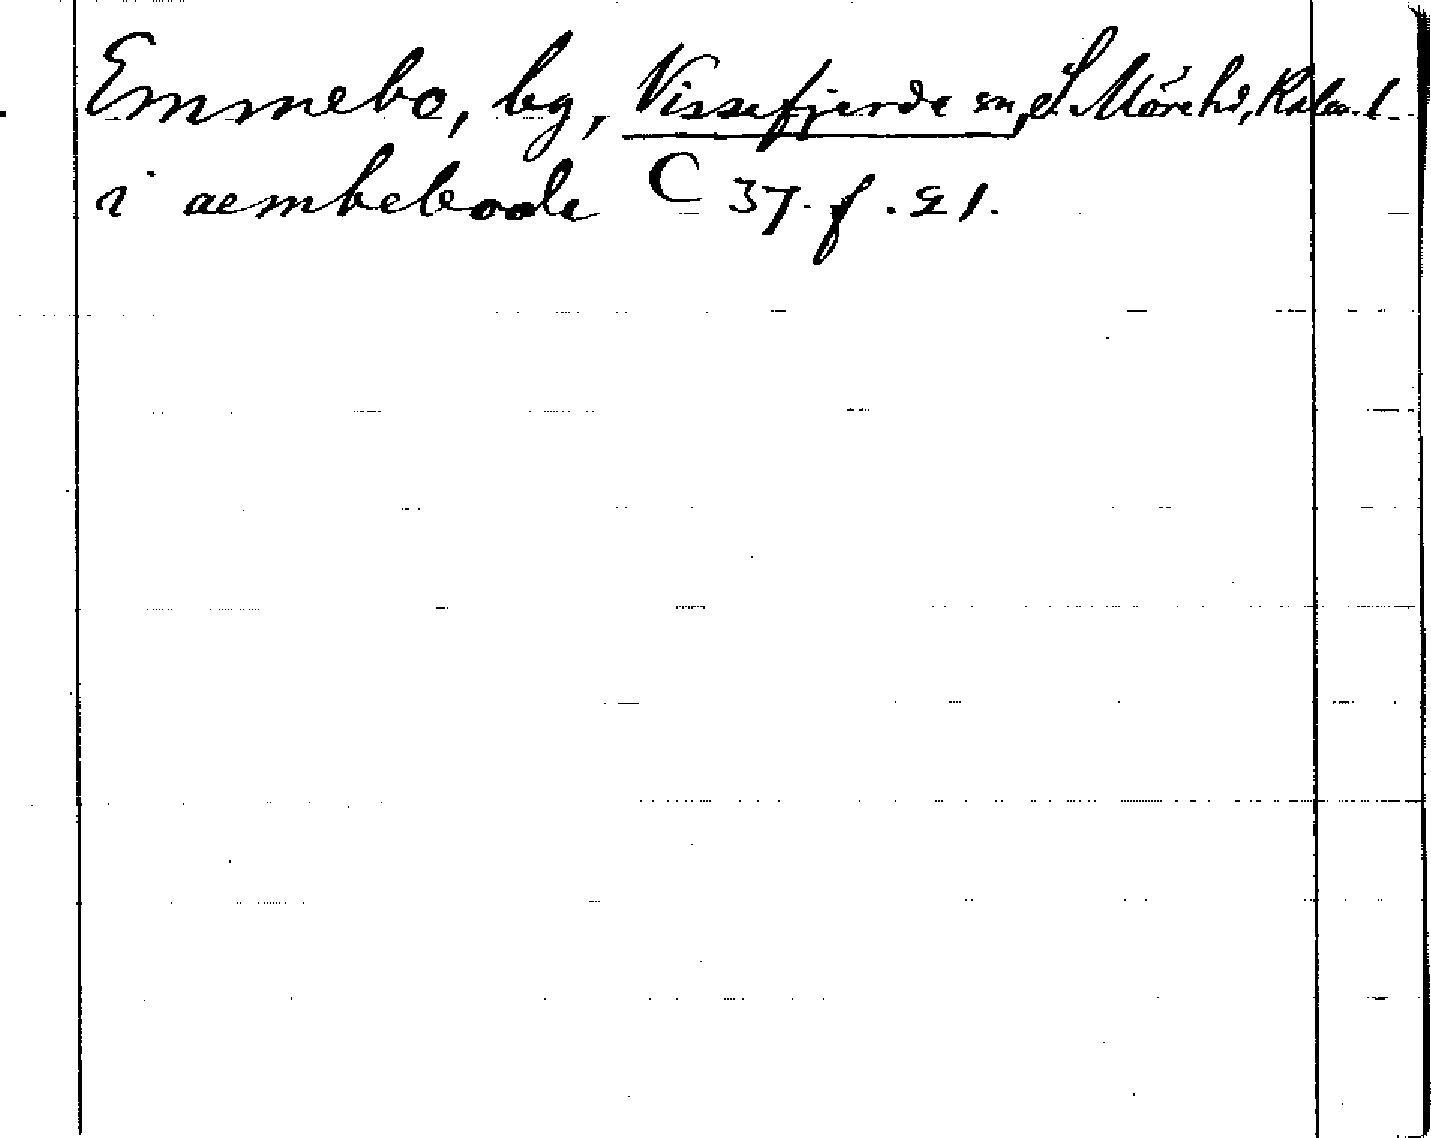 Emmebo, bg, Vissefjerde sn, S. Möre hd, Kalm. l.
i aembeboda C 37. f. 21.